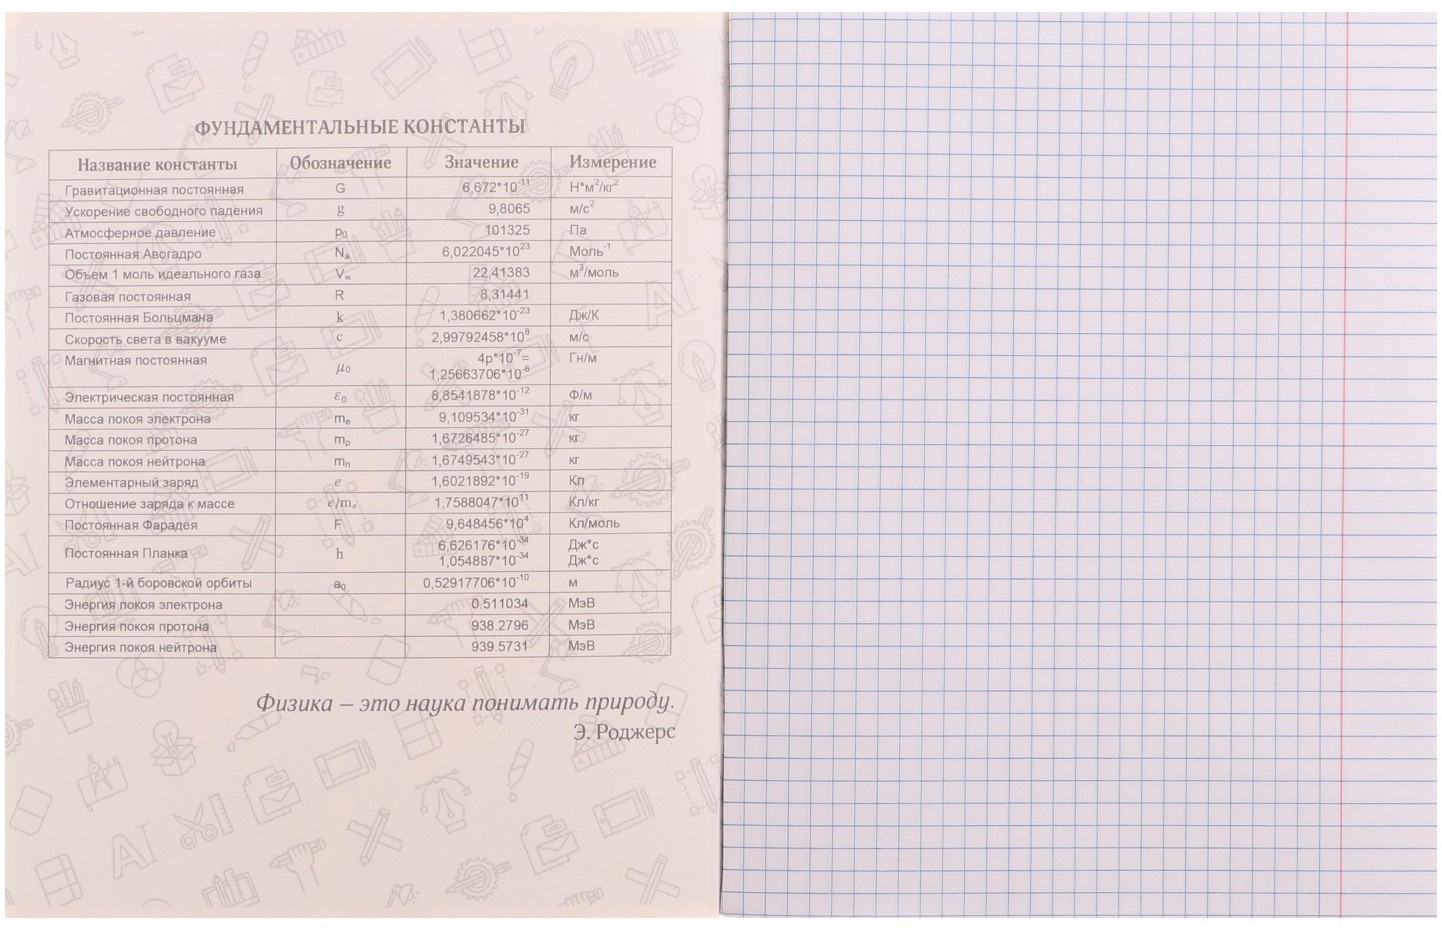 ФУНДАМЕНТАЛЬНЫЕ КОНСТАНТЫ
Название константы Обозначение Значение Измерение
Гравитационная постоянная G 6,672*10⁻¹¹ Н*м²/кг²
Ускорение свободного падения g 9,8065 м/с²
Атмосферное давление p₀ 101325 Па
Постоянная Авогадро Nₐ 6,022045*10²³ Моль⁻¹
Объем 1 моль идеального газа V₌ 22,41383 м³/моль
Газовая постоянная R 8,31441
Постоянная Больцмана k 1,380662*10⁻²³ Дж/К
Скорость света в вакууме c 2,99792458*10⁸ м/с
Магнитная постоянная μ₀ 4p*10⁻⁷= Гн/м
1,25663706*10⁻⁶
Электрическая постоянная ε₀ 8,8541878*10⁻¹² Ф/м
Масса покоя электрона mₑ 9,109534*10⁻³¹ кг
Масса покоя протона mₚ 1,6726485*10⁻²⁷ кг
Масса покоя нейтрона mₙ 1,6749543*10⁻²⁷ кг
Элементарный заряд e 1,6021892*10⁻¹⁹ Кл
Отношение заряда к массе e/mₑ 1,7588047*10¹¹ Кл/кг
Постоянная Фарадея F 9,648456*10⁴ Кл/моль
Постоянная Планка h 6,626176*10⁻³⁴ Дж*с
1,054887*10⁻³⁴ Дж*с
Радиус 1-й боровской орбиты a₀ 0,52917706*10⁻¹⁰ м
Энергия покоя электрона 0.511034 МэВ
Энергия покоя протона 938.2796 МэВ
Энергия покоя нейтрона 939.5731 МэВ
Физика – это наука понимать природу.
Э. Роджерс